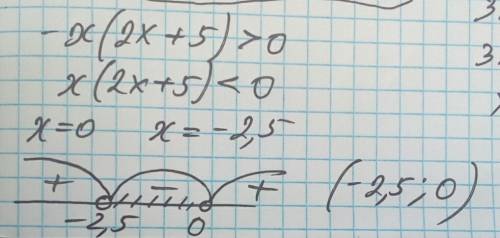 -x(2x+5)>0
x(2x+5)<0
x=0 x=-2,5
+ - + (-2,5;0)
-2,5 0
3
3.